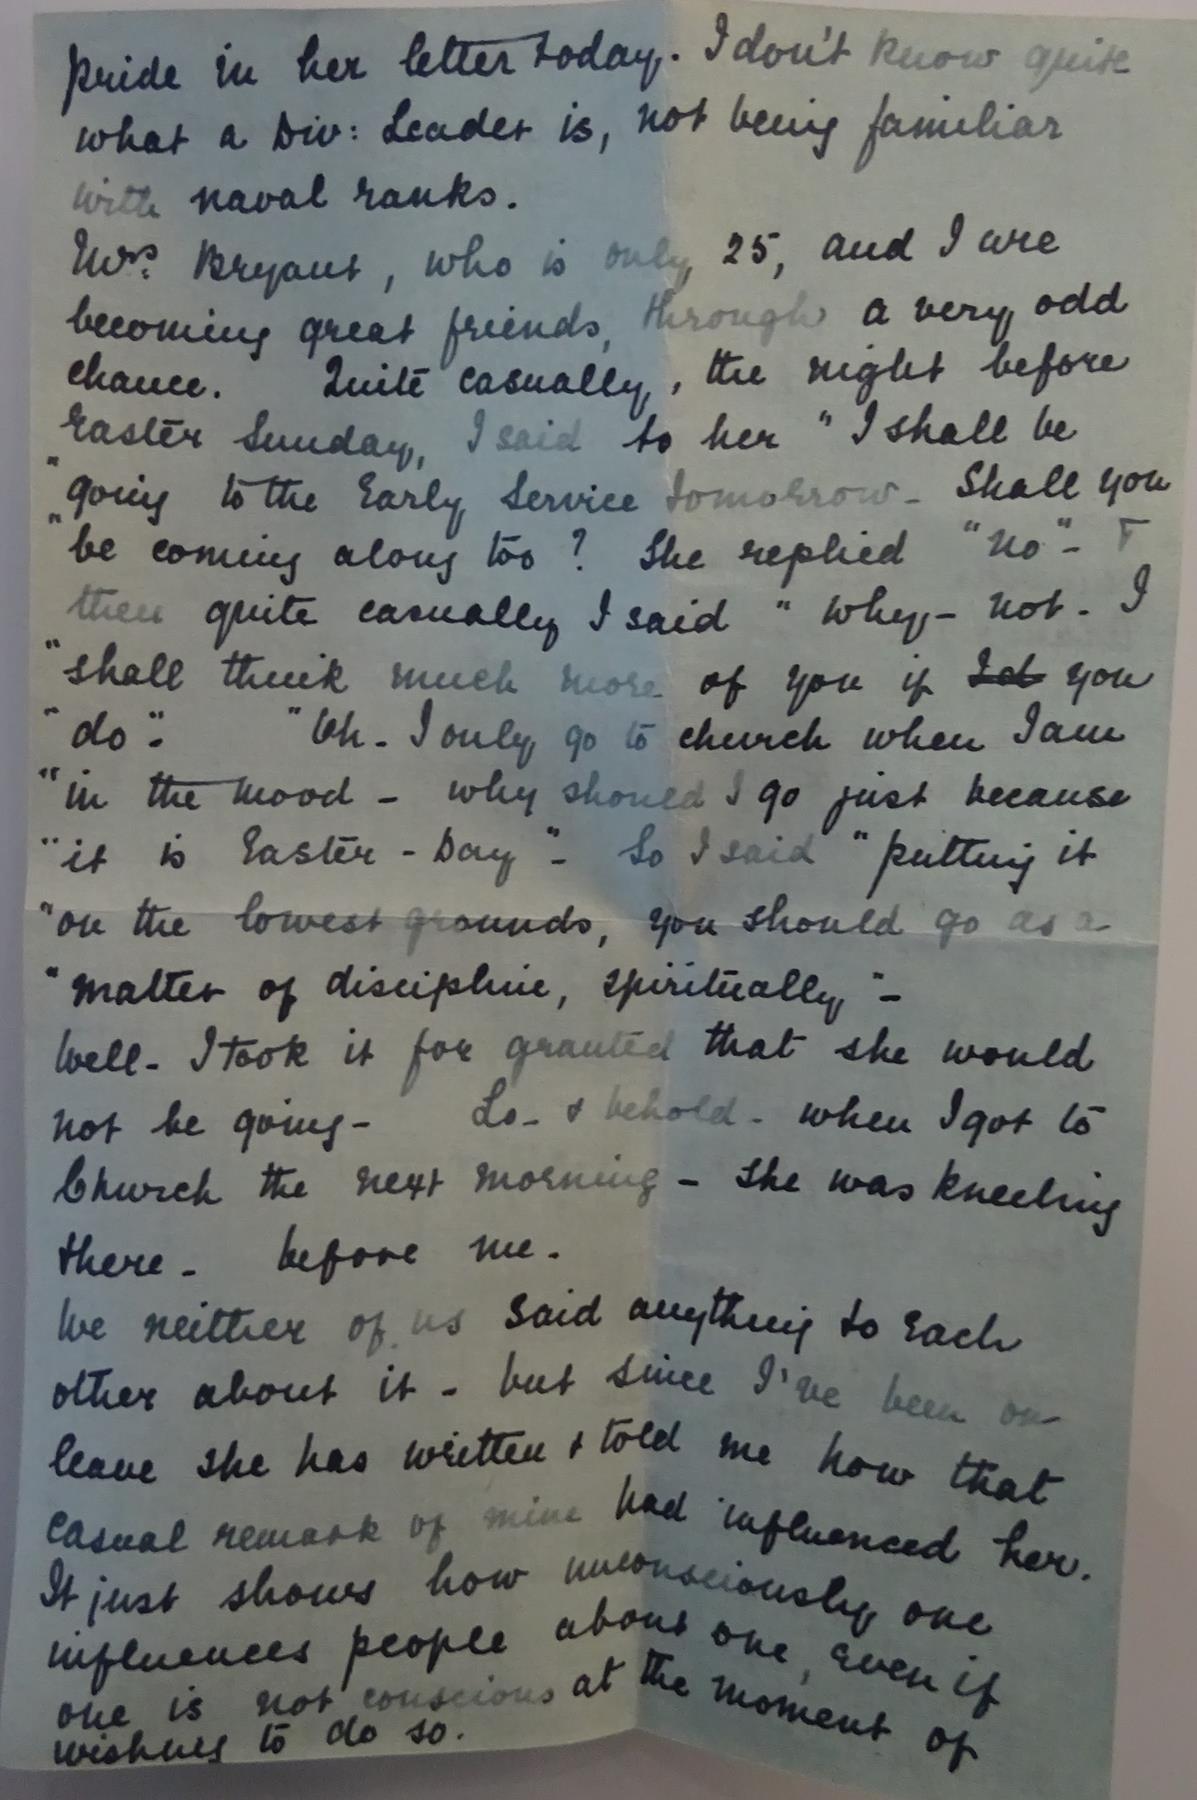 pride in her letter today. I don't know quite
what a Div: Leader is, not being familiar
with naval ranks.
Mrs. Bryant, who is only 25, and I are
becoming great friends, through a very odd
chance. Quite casually, the night before
Easter Sunday, I said to her "I shall be
"going to the Early Service tomorrow - Shall you
"be coming along too? She replied "No" -
then quite casually I said "Why - not - I
"shall think much more of you if you
"do". "Oh - I only go to church when I am
"in the mood - why should I go just because
"it is Easter - Day" - So I said "putting it
"on the lowest grounds, you should go as a
"matter of discipline, spiritually" -
Well - I took it for granted that she would
not be going - Lo - & behold - when I got to
Church the next morning - she was kneeling
there - before me.
We neither of us said anything to each
other about it - but since I've been on
leave she has written & told me how that
casual remark of mine had influenced her.
It just shows how unconsciously one
influences people about one, even if
one is not conscious at the moment of
wishing to do so.